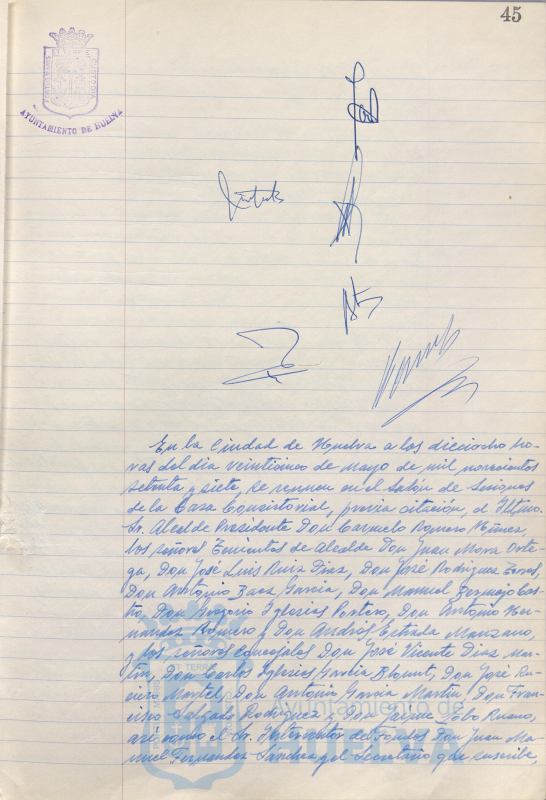 45
AYUNTAMIENTO DE HUELVA
En la Ciudad de Huelva a los dieciocho ho-
ras del día veinticinco de mayo de mil novecientos
setenta y siete, se reunen en el Salón de Sesiones
de la Casa Consistorial, previa citación, el Iltmo.
Sr. Alcalde Presidente Don Carmelo Romero Núñez,
los señores Tenientes de Alcalde Don Juan Mora Orte-
ga, Don José Luis Ruiz Díaz, Don José Rodríguez
Don Antonio Baez García, Don Manuel Bermejo Cas-
tro, Don Gregorio Iglesias Portero, Don Antonio Her-
nández Romero y Don Andrés Estrada Manzano,
y los señores Concejales Don José Vicente Díaz Mar-
tín, Don Carlos Iglesias García Blount, Don José
Martel, Don Antonio García Martín, Don Fran-
cisco Salgado Rodríguez y Don Jaime
así como el Sr. Interventor de Fondos Don Juan Ma-
nuel Fernández Sánchez y el Secretario que suscribe,
Ayuntamiento de
HUELVA